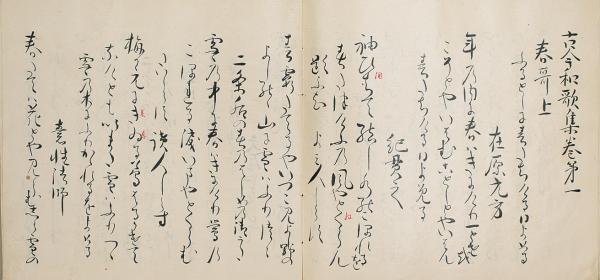 古今和歌集巻第一
春哥上
ふるとしに春たちける日よめる
在原元方
年の内に春はきにけり一とせを
こそとやいはむことしとやいはん
春たちける日よめる
紀貫之
袖ひちて結し水のこほれるを
春たつけふの風やとくらん
題しらす　よみ人しらす
春霞たてるやいつこみよし野の
よしのゝ山に雪はふりつゝ
二条后の春のはしめの御うた
雪の中に春はきにけり鶯の
こほれる涙いまやとくらむ
たいしらす　読人しらす
梅かえにきゐる鶯春かけて
なけともいまた雪はふりつゝ
雪の木にふりかゝれるをよめる
素性法師
春たては花とやみらむ白雪の